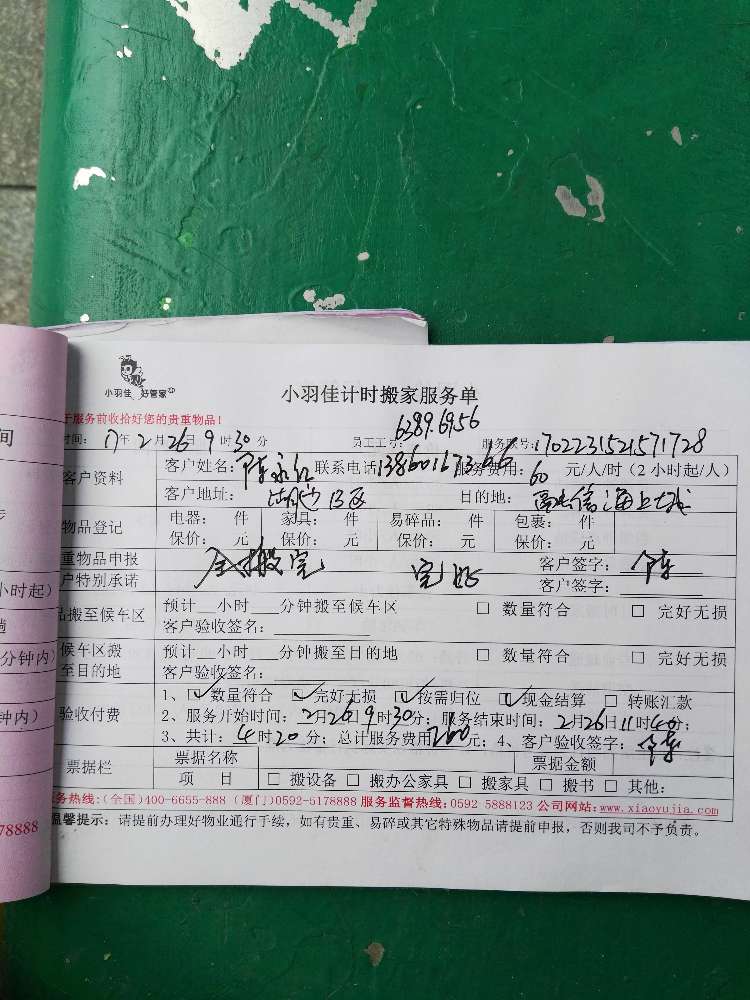 小羽佳 好管家
小羽佳计时搬家服务单
于服务前收拾好您的贵重物品！
6289.6956
时间： 17年 2月 26日 9时 30分 员工工号： 服务账号：1702231521571728
客户资料 客户姓名： 联系电话 服务费用： 60 元/人/时（2 小时起/人）
客户地址： 目的地：
物品登记 电器： 件 家具： 件 易碎品： 件 包裹： 件
保价： 元 保价： 元 保价： 元 保价： 元
重物品申报 全搬完 完好 客户签字：
户特别承诺 客户签字：
品搬至候车区 预计__小时___分钟搬至候车区 □ 数量符合 □ 完好无损
客户验收签名：
候车区搬至目的地 预计__小时___分钟搬至目的地 □ 数量符合 □ 完好无损
客户验收签名：
验收付费 1、☑数量符合 ☑完好无损 ☑按需归位 ☑现金结算 □ 转账汇款
2、服务开始时间：2月26日9时30分；服务结束时间：2月26日11时40分；
3、共计：4时20分；总计服务费用260元；4、客户验收签字：
票据栏 票据名称 票据金额
项 目 □ 搬设备 □ 搬办公家具 □ 搬家具 □ 搬书 □ 其他：
务热线：(全国)400-6655-888 (厦门)0592-5178888 服务监督热线：0592 5888123 公司网站：www.xiaoyujia.com
温馨提示：请提前办理好物业通行手续，如有贵重、易碎或其它特殊物品请提前申报，否则我司不予负责。
间
步
小时起）
趟
分钟内）
钟内）
78888